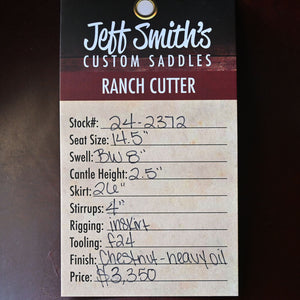 Jeff Smith's
CUSTOM SADDLES
RANCH CUTTER
Stock#: 24-2372
Seat Size: 14.5"
Swell: BW 8"
Cantle Height: 2.5"
Skirt: 26"
Stirrups: 4"
Rigging: inskirt
Tooling: F24
Finish: Chestnut - heavy oil
Price: $3,350